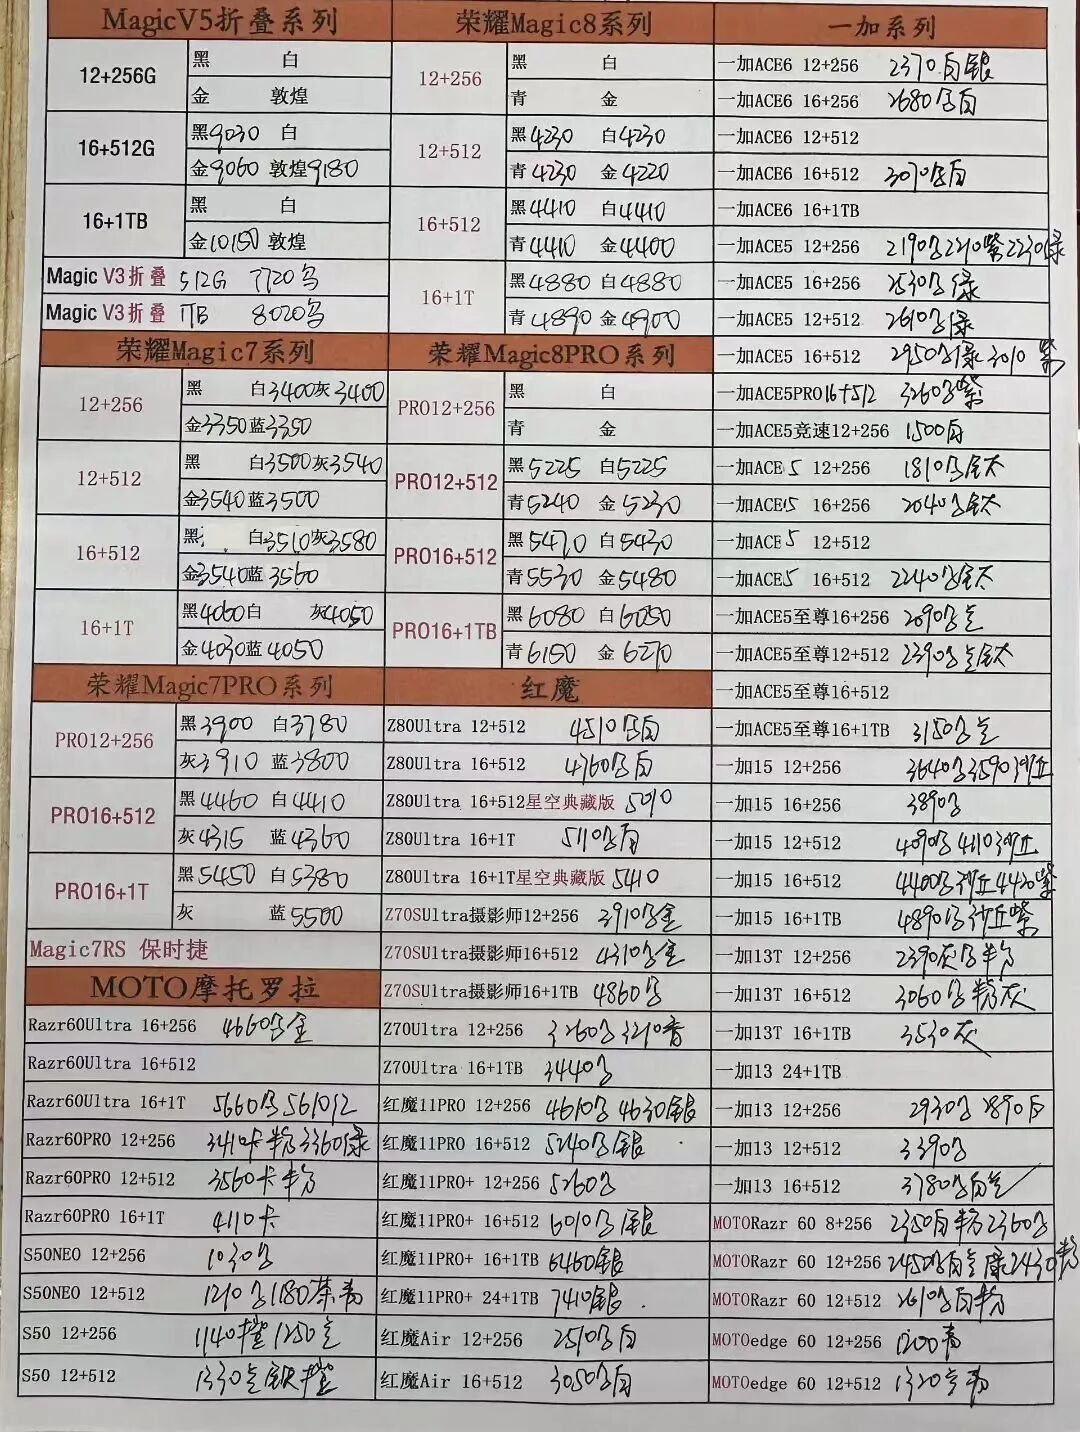 MagicV5折叠系列
12+256G 黑 白
金 敦煌
16+512G 黑9030 白
金9060 敦煌9180
16+1TB 黑 白
金10150 敦煌
Magic V3折叠 512G 7720
Magic V3折叠 1TB 8020
荣耀Magic7系列
12+256 黑 白3400灰3400
金3350蓝3350
12+512 黑 白3500灰3540
金3540蓝3500
16+512 黑 白3510灰3580
金3540蓝3560
16+1T 黑4060白 灰4050
金4030蓝4050
荣耀Magic7PRO系列
PRO12+256 黑3900 白3780
灰3910 蓝3800
PRO16+512 黑4460 白4410
灰4315 蓝4360
PRO16+1T 黑5450 白5380
灰 蓝5500
Magic7RS 保时捷
MOTO摩托罗拉
Razr60Ultra 16+256 4660 金
Razr60Ultra 16+512
Razr60Ultra 16+1T 5660 5610
Razr60PRO 12+256 3410卡粉3360绿
Razr60PRO 12+512 3560卡粉
Razr60PRO 16+1T 4110卡
S50NEO 12+256 1030
S50NEO 12+512 1210 1180茶
S50 12+256 1140 1250
S50 12+512 1330
荣耀Magic8系列
12+256 黑 白
青 金
12+512 黑4230 白4230
青4230 金4220
16+512 黑4410 白4410
青4410 金4400
16+1T 黑4880 白4880
青4890 金4900
荣耀Magic8PRO系列
PRO12+256 黑 白
青 金
PRO12+512 黑5225 白5225
青5240 金5230
PRO16+512 黑5470 白5430
青5530 金5480
PRO16+1TB 黑6080 白6050
青6150 金6270
红魔
Z80Ultra 12+512 4510 白
Z80Ultra 16+512 4760 白
Z80Ultra 16+512星空典藏版 5090
Z80Ultra 16+1T 5110 白
Z80Ultra 16+1T星空典藏版 5410
Z70SUltra摄影师12+256 3910 金
Z70SUltra摄影师16+512 4310 金
Z70SUltra摄影师16+1TB 4860
Z70Ultra 12+256 3260 3210
Z70Ultra 16+1TB 3440
红魔11PRO 12+256 4610 4630银
红魔11PRO 16+512 5240 银
红魔11PRO+ 12+256 5260
红魔11PRO+ 16+512 6010 银
红魔11PRO+ 16+1TB 6460银
红魔11PRO+ 24+1TB 7410银
红魔Air 12+256 2510 白
红魔Air 16+512 3050 白
一加系列
一加ACE6 12+256 2370白银
一加ACE6 16+256 2680 白
一加ACE6 12+512
一加ACE6 16+512 3070 白
一加ACE6 16+1TB
一加ACE5 12+256 2190 2210紫2230绿
一加ACE5 16+256 2530 绿
一加ACE5 12+512 2610 绿
一加ACE5 16+512 2950 绿3010紫
一加ACE5PRO16+512 3260 紫
一加ACE5竞速12+256 1500白
一加ACE5 12+256 1810 钛
一加ACE5 16+256 2040 钛
一加ACE5 12+512
一加ACE5 16+512 2240 钛
一加ACE5至尊16+256 2090
一加ACE5至尊12+512 2390 钛
一加ACE5至尊16+512
一加ACE5至尊16+1TB 3150
一加15 12+256 3640 3590沙丘
一加15 16+256 3890
一加15 12+512 4090 4110沙丘
一加15 16+512 4400 沙丘4430紫
一加15 16+1TB 4890 沙丘紫
一加13T 12+256 2390灰 粉
一加13T 16+512 3060 粉灰
一加13T 16+1TB 3530灰
一加13 24+1TB
一加13 12+256 2930 2890白
一加13 12+512 3390
一加13 16+512 3780 白
MOTORazr 60 8+256 2350白粉2360
MOTORazr 60 12+256 2450 白 绿2430粉
MOTORazr 60 12+512 2610 白粉
MOTOedge 60 12+256 1200青
MOTOedge 60 12+512 1320